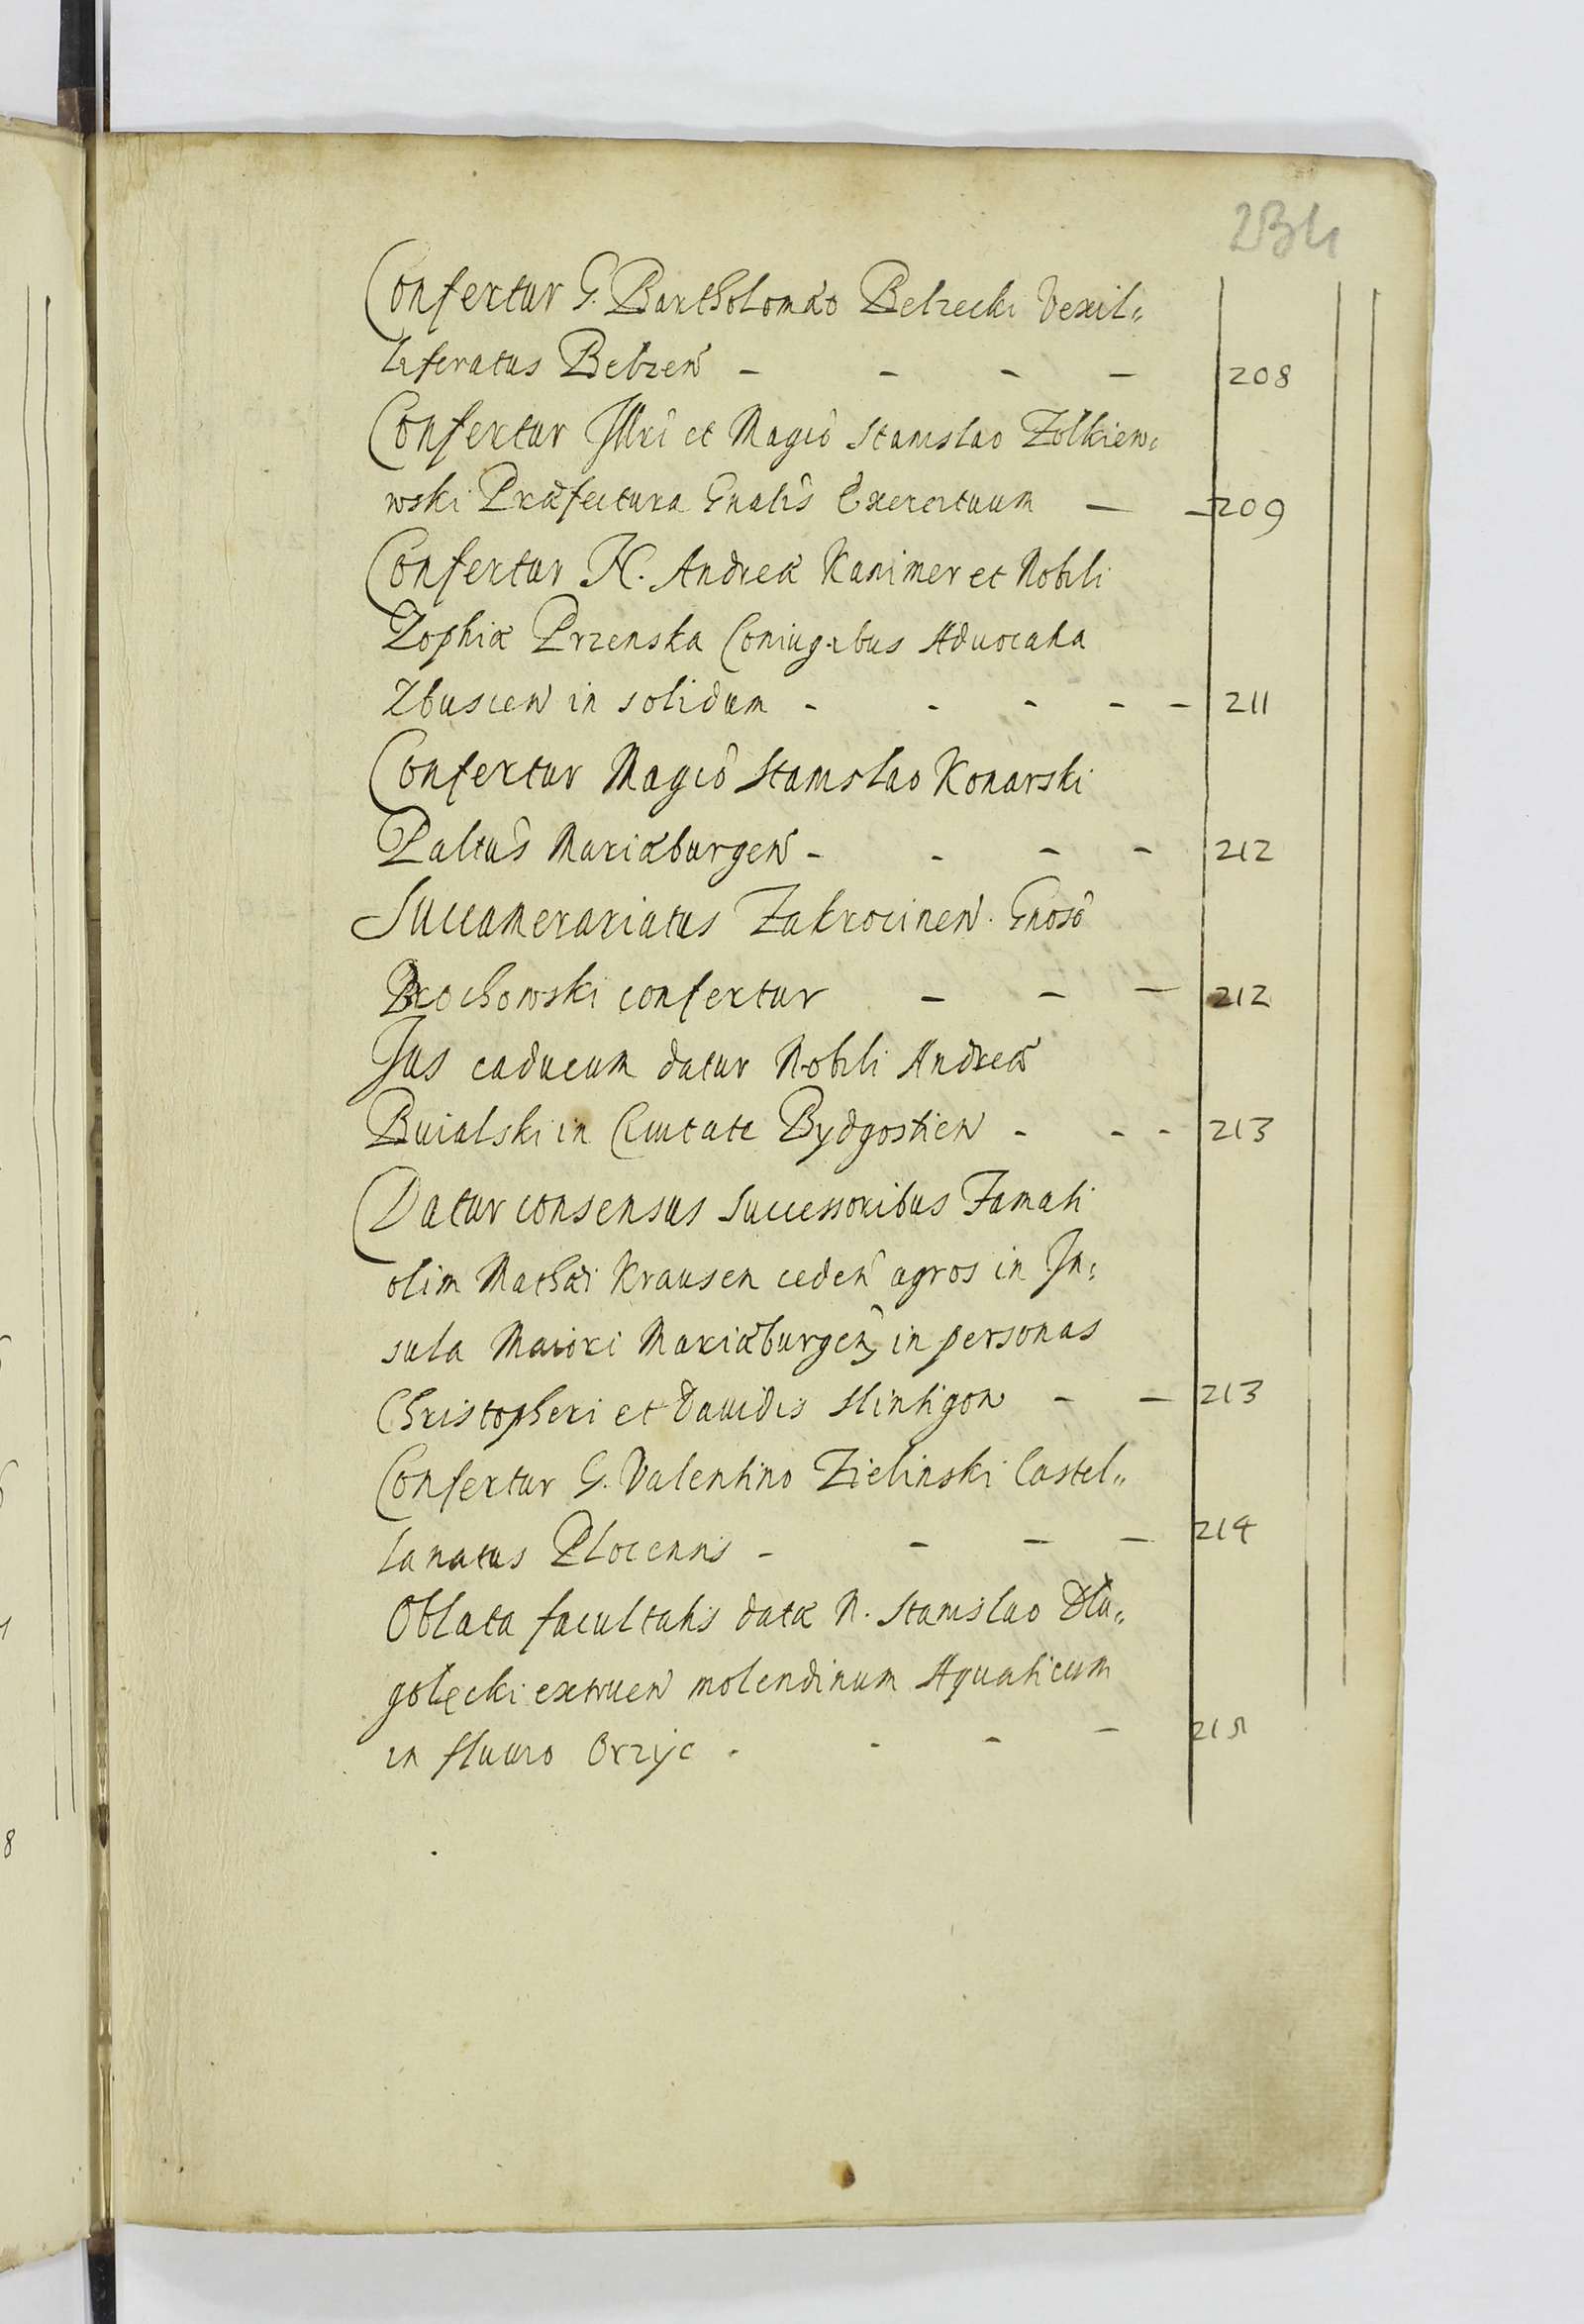 234
Confertur G. Bartholomæo Belzecki Vexil„
liferatus Belzen̄ - - - - 208
Confertur Illri et Magco Stanislao Zołkiew„
wski Præfectura Gnalis Exercituum - - 209
Confertur N. Andreæ Kanimer et Nobili
Zophiæ Przenska Coniugibus Aduocatia
Xbuscen̄ in solidum - - - - - 211
Confertur Magco Stanislao Konarski
Paltus Mariæburgen̄ - - - - 212
Succamerariatus Zakrocinen̄. Gnoso
Brochowski confertur - - - 212
Jus caducum datur Nobili Andreæ
Buialski in Ciuitate Bydgostien̄ - - - 213
Datur consensus Successoribus Famati
olim Mathæi Krausen ceden̄ agros in In„
sula Maiori Mariæburgen̄, in personas
Christopheri et Dauidis - - 213
Confertur G. Valentino Zielinski Castel„
lanatus Plocensis - - - - 214
Oblata facultatis datæ N. Stanislao Dłu„
golęcki extruen̄ molendinum Aquaticum
in fluuio Orzyc - - - - 215
8